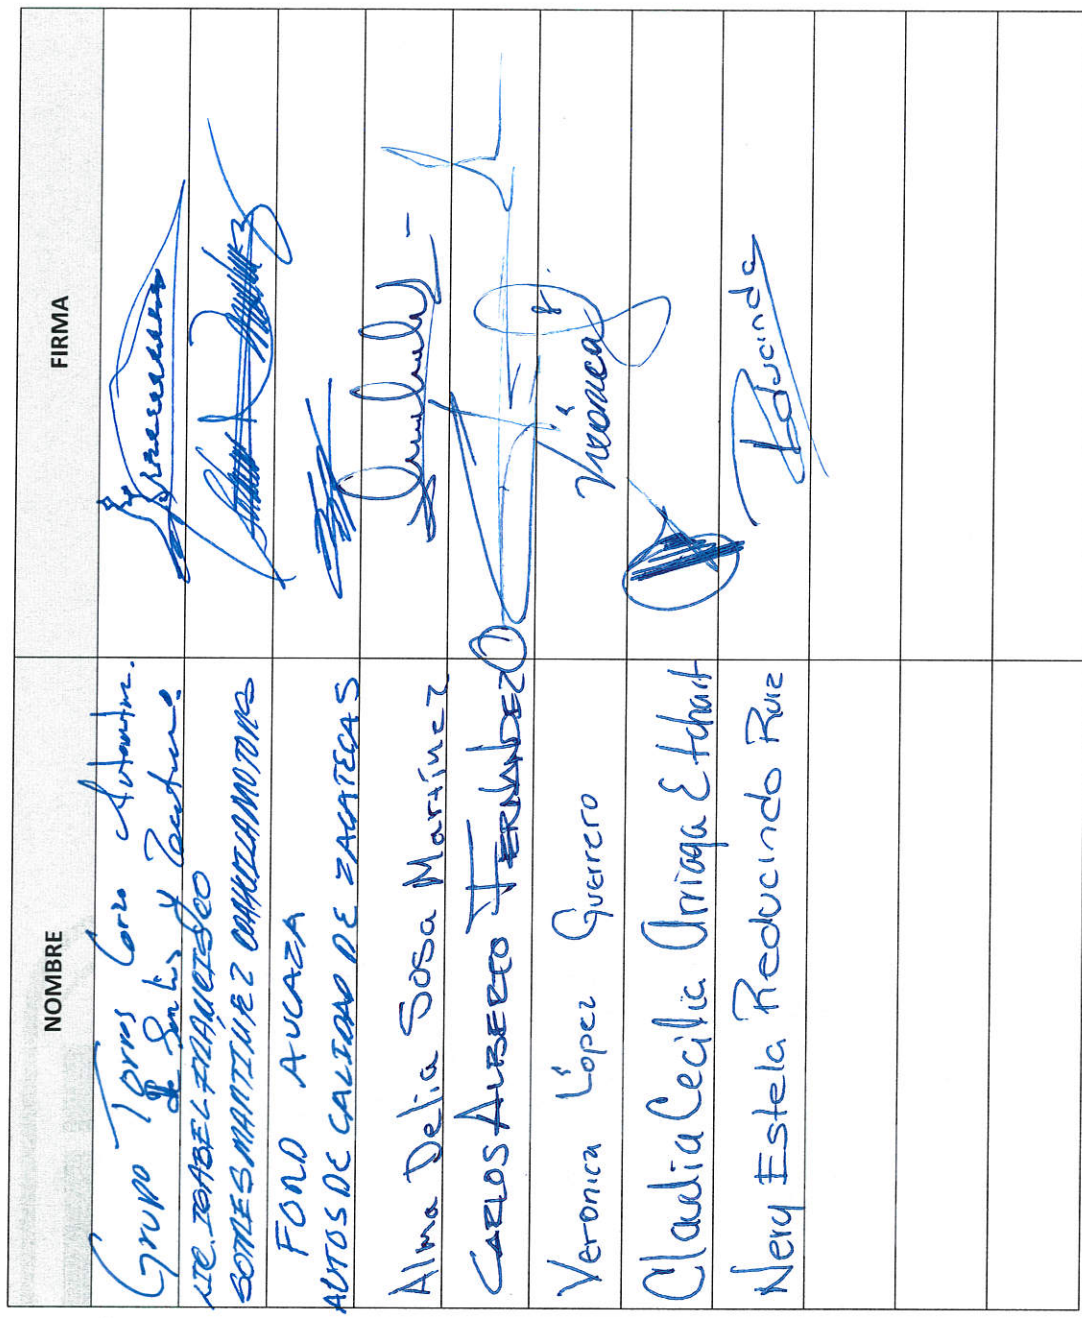 NOMBRE FIRMA
Grupo Torres Corzo Automotriz
de San Luis y Zacatecas.
LIC. ISABEL FRANCISCO
MARTINEZ COAHUILAMOTORS
FORD AUCAZA
AUTOS DE CALIDAD DE ZACATECAS
Alma Delia Sosa Martínez
CARLOS ALBERTO FERNÁNDEZ O
Veronica López Guerrero Verónica
Claudia Cecilia Arriaga Etchart
Nery Estela Reducindo Ruiz Reducindo